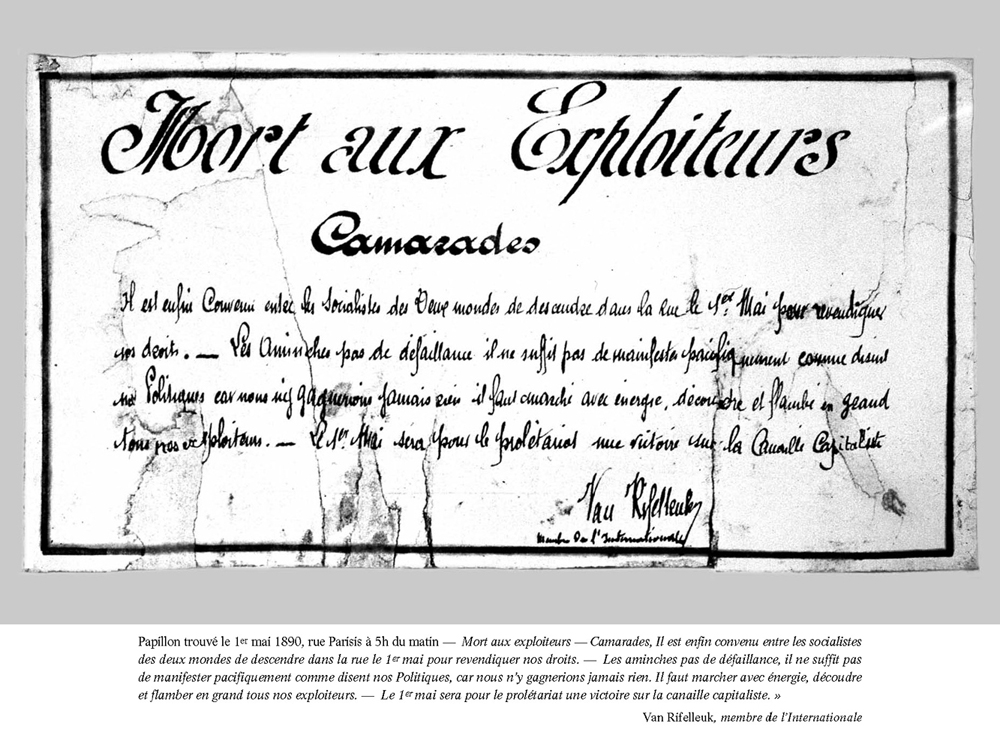 Mort aux Exploiteurs
Camarades
Il est enfin Convenu entre les Socialistes des Deux mondes de descendre dans la Rue le 1er Mai pour revendiquer
nos droits. — Les Aminches pas de défaillance il ne suffit pas de manifester pacifiquement comme disent
nos Politiques car nous n'y gagnerions jamais rien il faut marché avec énergie, découdre et flambé en grand
tous nos exploiteurs. — Le 1er Mai sera pour le prolétariat une victoire sur la Canaille Capitaliste
Van Rifelleuk
membre De l'Internationale
Papillon trouvé le 1er mai 1890, rue Parisis à 5h du matin — Mort aux exploiteurs — Camarades, Il est enfin convenu entre les socialistes
des deux mondes de descendre dans la rue le 1er mai pour revendiquer nos droits. — Les aminches pas de défaillance, il ne suffit pas
de manifester pacifiquement comme disent nos Politiques, car nous n'y gagnerions jamais rien. Il faut marcher avec énergie, découdre
et flamber en grand tous nos exploiteurs. — Le 1er mai sera pour le prolétariat une victoire sur la canaille capitaliste. »
Van Rifelleuk, membre de l'Internationale